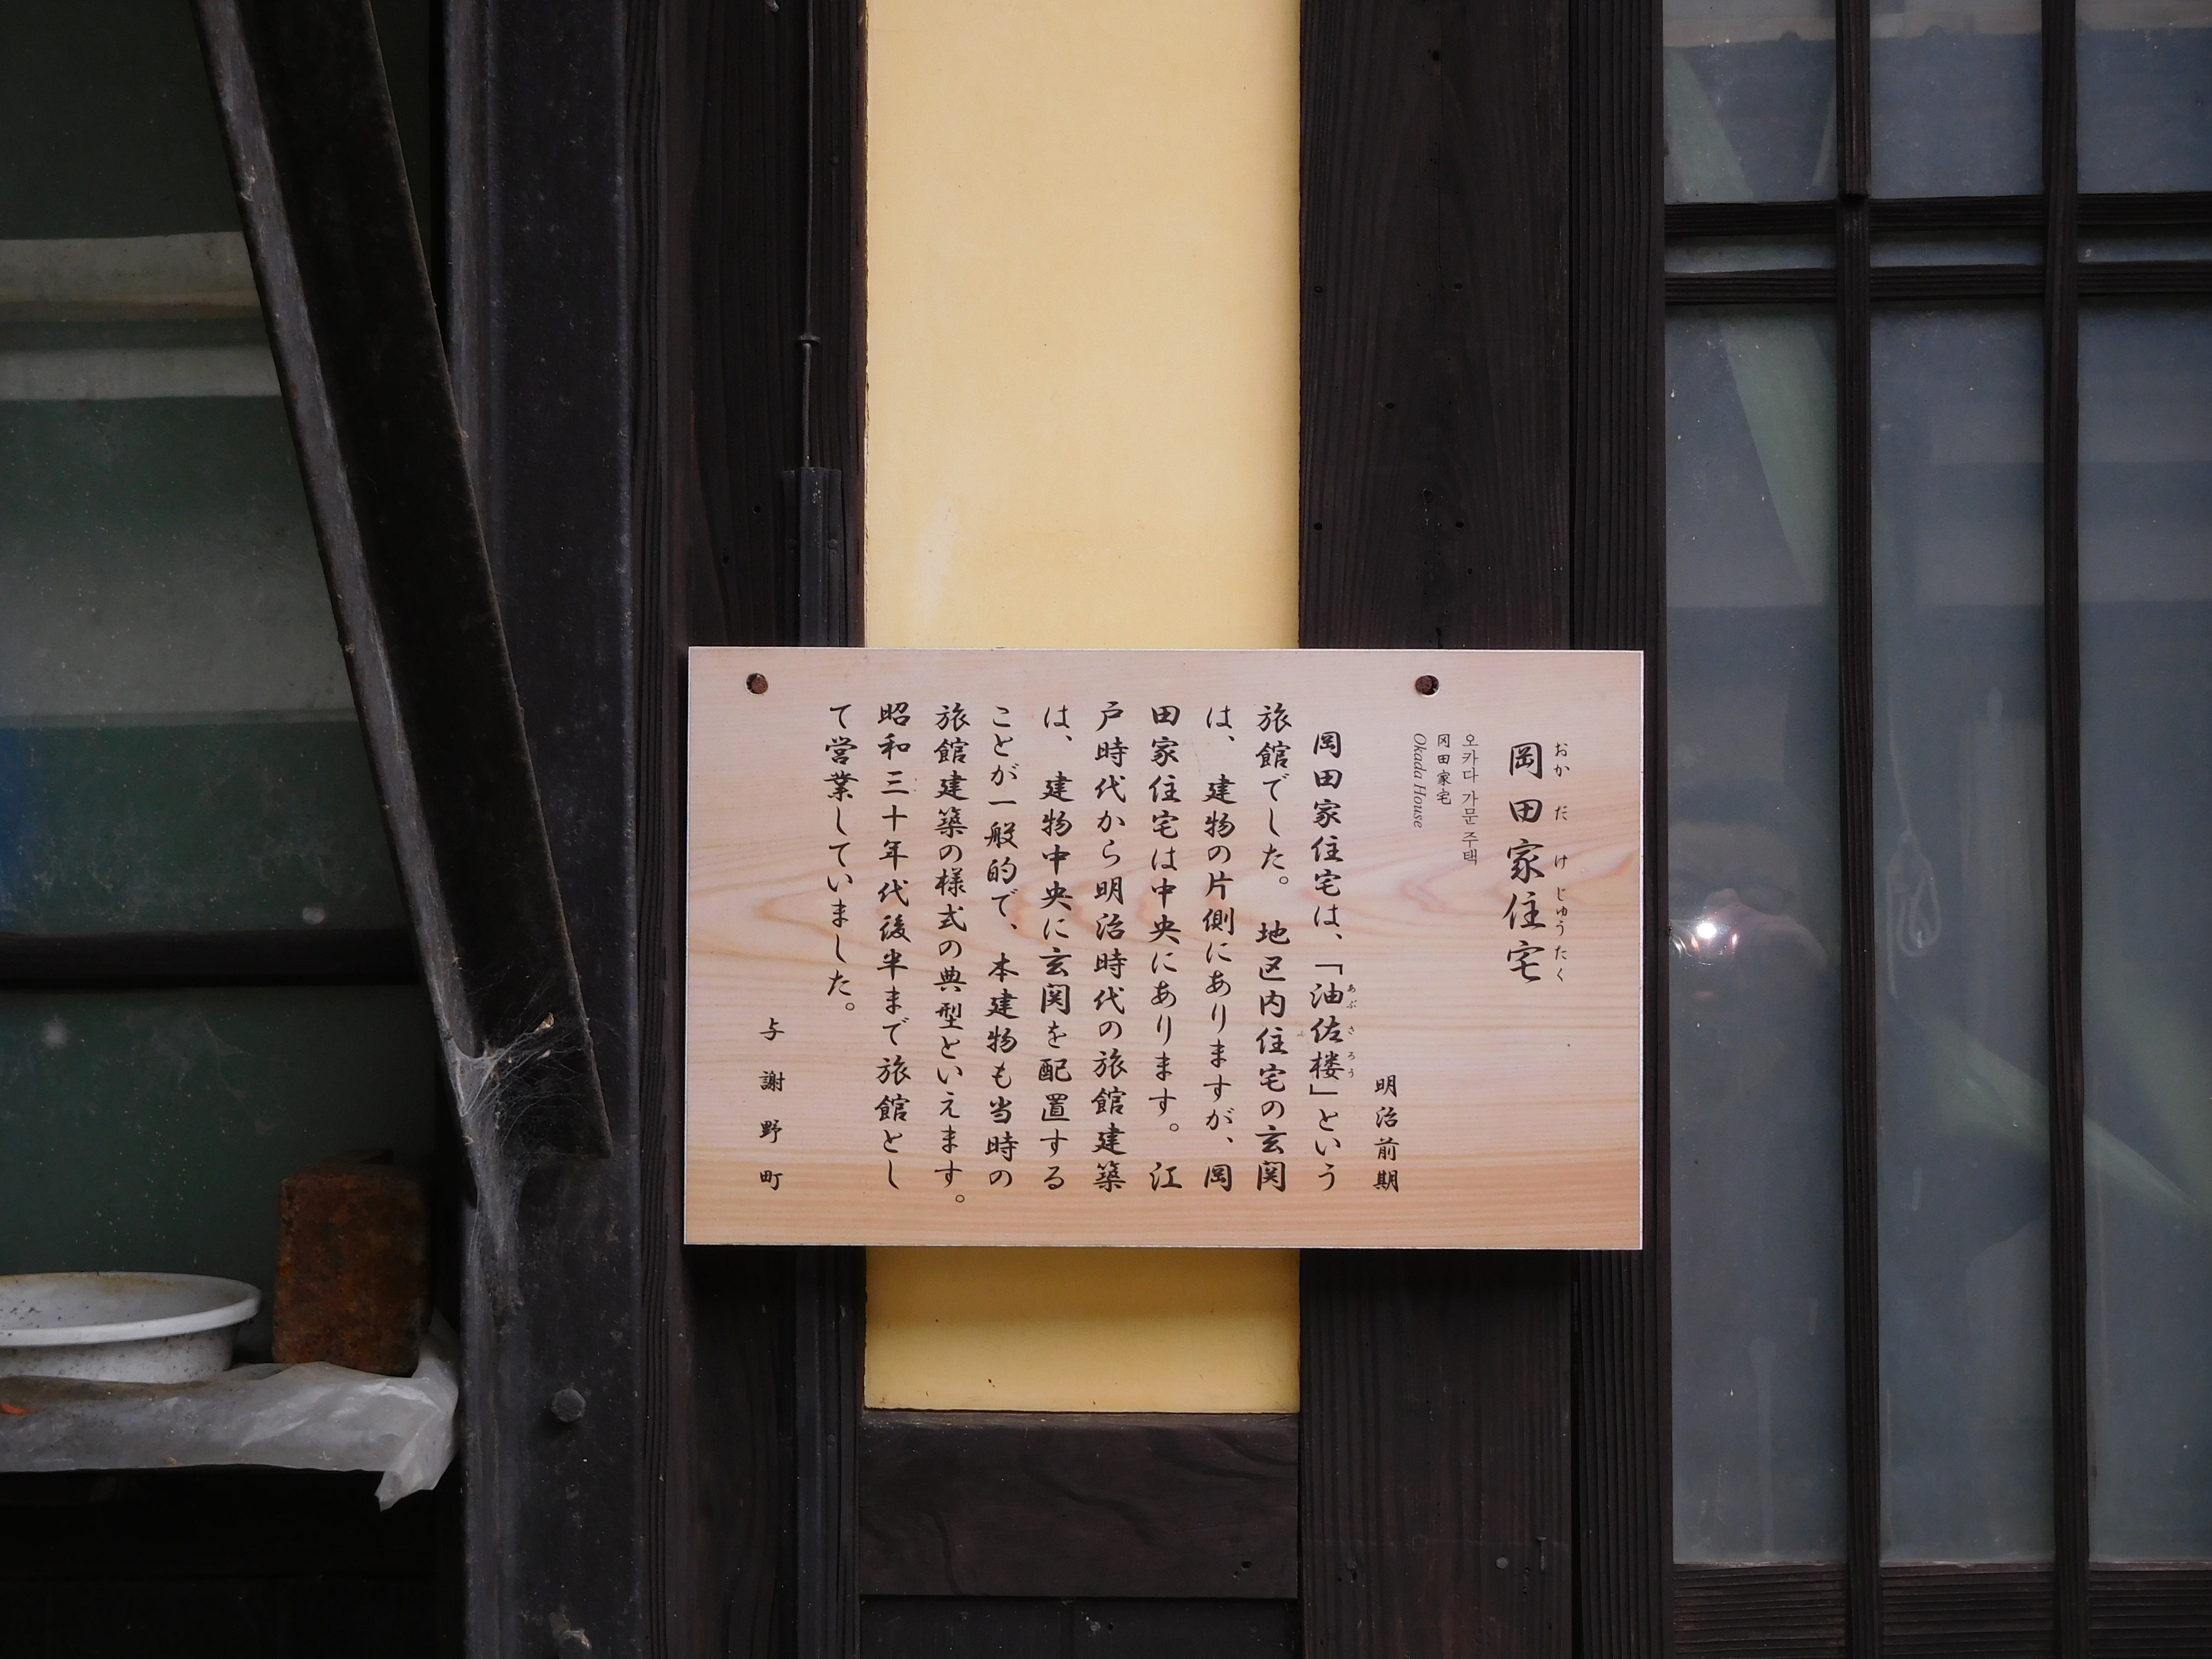 岡田家住宅
おかだけじゅうたく
오카다 가문 주택
冈田家宅
Okada House
明治前期
岡田家住宅は、「油佐楼」という
あぶさろう
旅館でした。地区内住宅の玄関
は、建物の片側にありますが、岡
田家住宅は中央にあります。江
戸時代から明治時代の旅館建築
は、建物中央に玄関を配置する
ことが一般的で、本建物も当時の
旅館建築の様式の典型といえます。
昭和三十年代後半まで旅館とし
て営業していました。
与謝野町